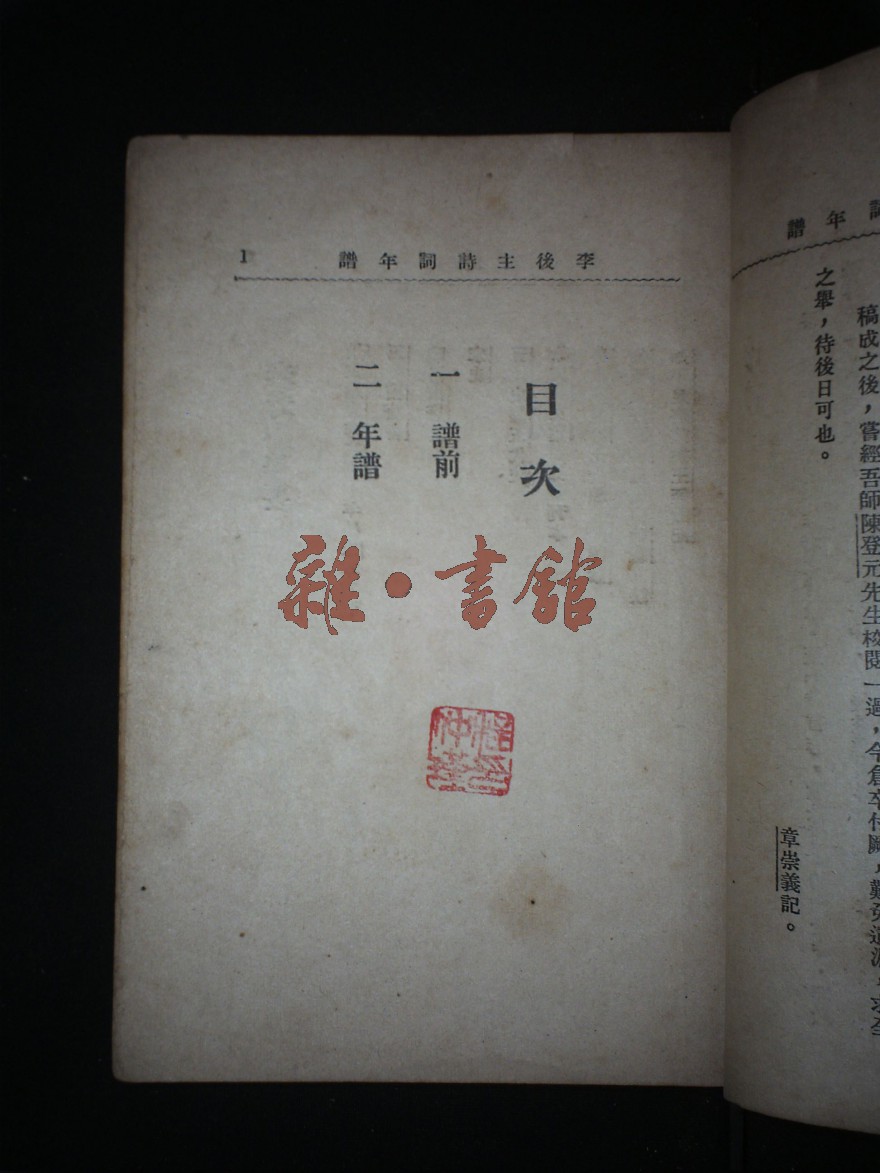 詞年譜
稿成之後，嘗經吾師陳登元先生校閱一過，今倉卒付
之舉，待後日可也。
章崇義記。
李後主詩詞年譜
1
目次
一 譜前
二 年譜
雜·書館